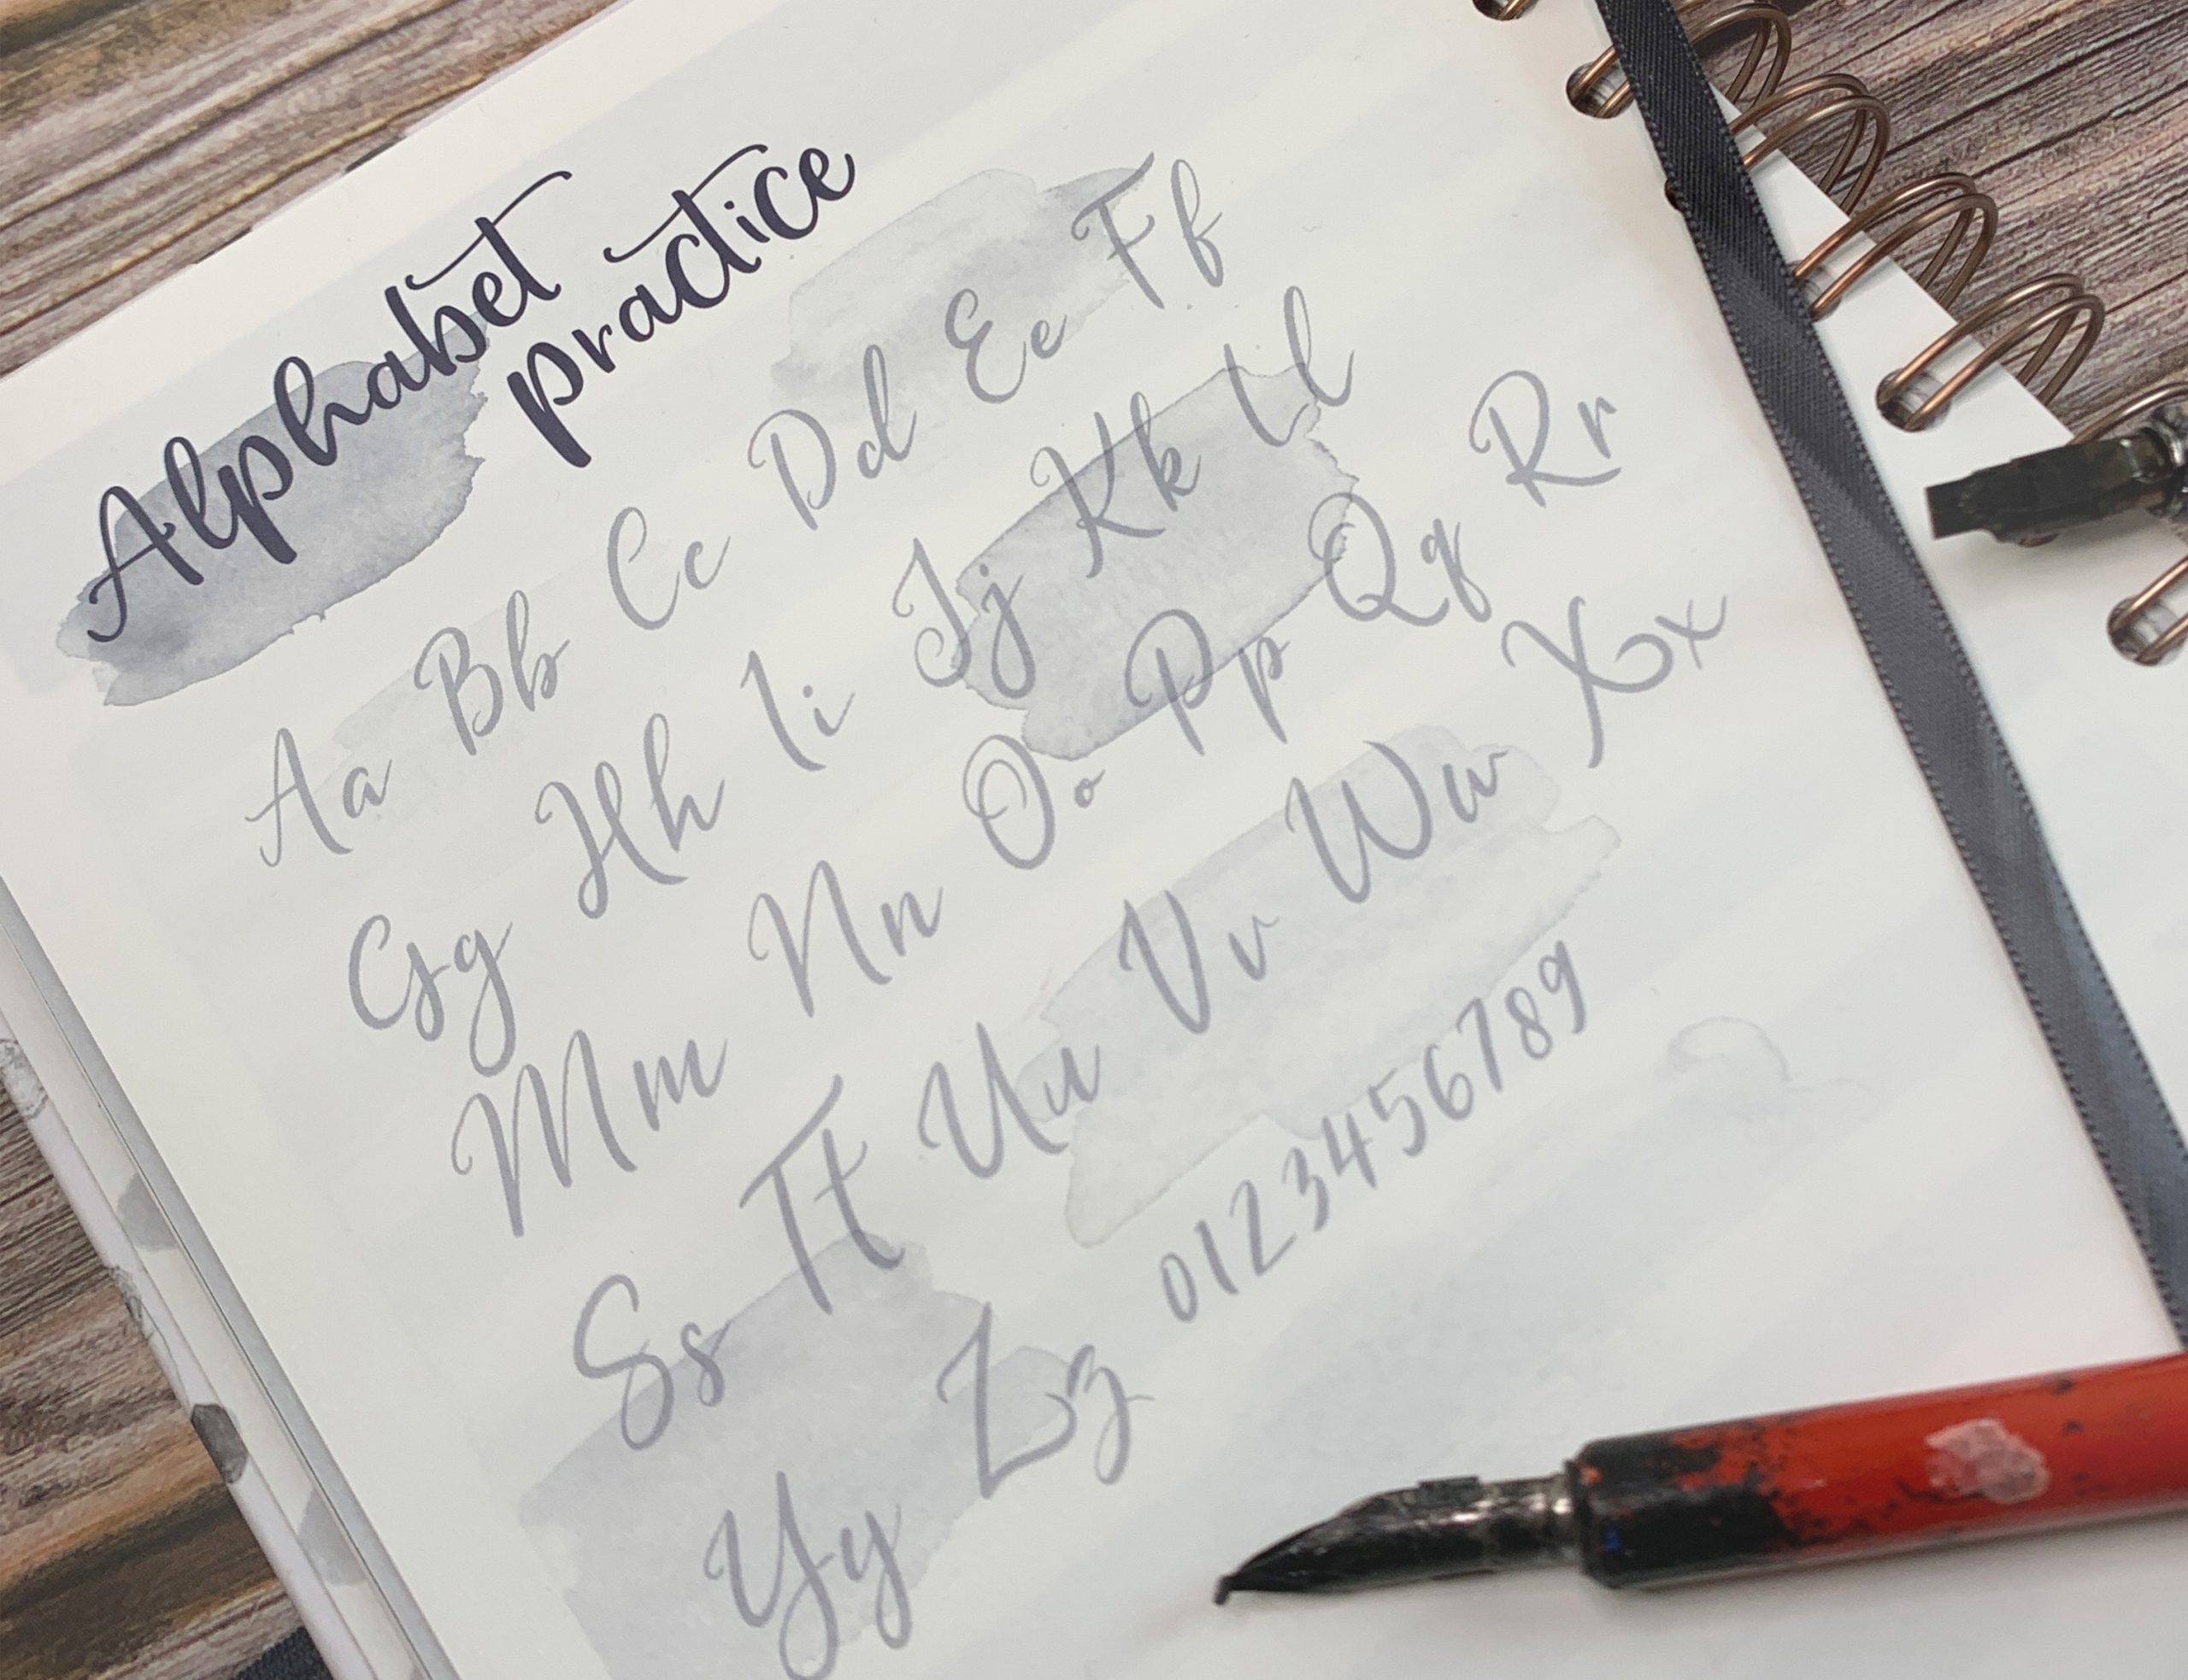 Alphabet
practice
Aa Bb Cc Dd Ee Ff
Gg Hh Ii Jj Kk Ll
Mm Nn Oo Pp Qq Rr
Ss Tt Uu Vv Ww Xx
Yy Zz 0123456789